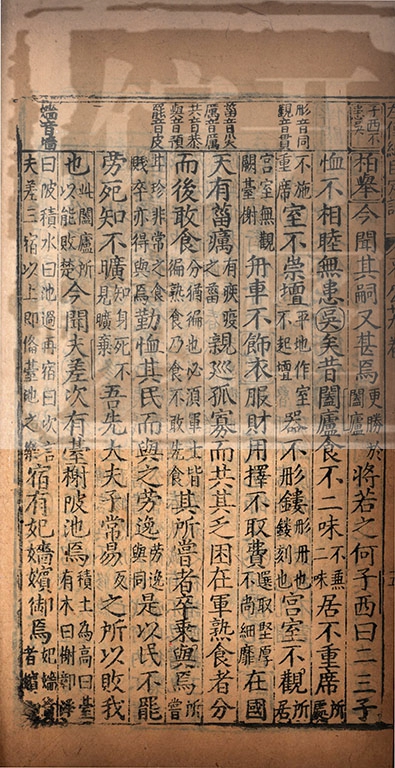 子西不患吳
彤音同
觀音貫
菑音災
厲音厲
共音恭
與音預
罷音皮
嬙音墻
柏舉今聞其嗣又甚焉更勝於闔廬將若之何子西曰二三子
恤不相睦無患吳矣昔闔廬食不二味不兼二味居不重席所處
不施重席室不崇壇平地作室不起壇器不彤鏤彤丹也鏤刻也宮室不觀所居
宮室無觀闕臺榭舟車不飾衣服財用擇不取費選取堅厚不尚細靡在國
天有菑癘有疾疫之菑親巡孤寡而共其乏困在軍熟食者分
而後敢食分猶徧也必須軍士皆徧熟食乃食不敢先食其所嘗者卒乘與焉所嘗
其珍非常之食賤卒亦得與焉勤恤其民而與之勞逸勞逸與同是以民不罷
勞死知不曠知身死不見曠棄吾先大夫子常易反之所以敗我
也此闔廬所以能敗楚今聞夫差次有臺榭陂池焉積土為高曰臺有木曰榭即澤
曰陂積水曰池過再宿曰次言夫差三宿以上即脩臺池之樂宿有妃嬙嬪御焉妃嬙者嬪